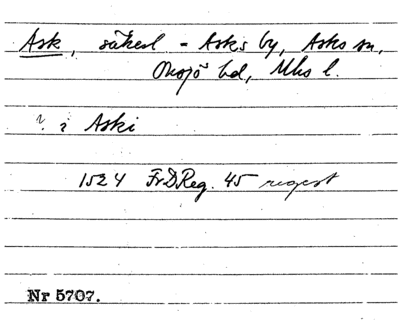 Ask, säkerl = Asks by, Asks sn,
Onsjö hd, Mhs l.
? i Aski
1524 FrDReg. 45 regest
Nr 5707.